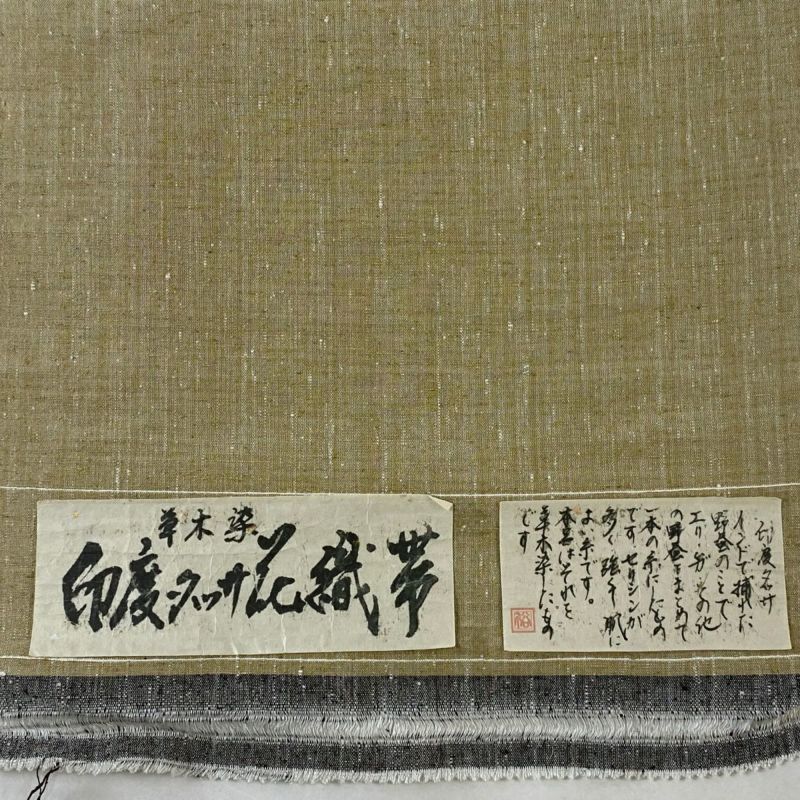 草木染
印度タッサ花織帯
印度タッサ
インドで捕れた
野蚕のことで
エリ分その他
の野蚕をまとめて
一本の糸にしたもの
です セリシンが
多く強く肌に
よい糸です。
本品はそれを
草木染したもの
です